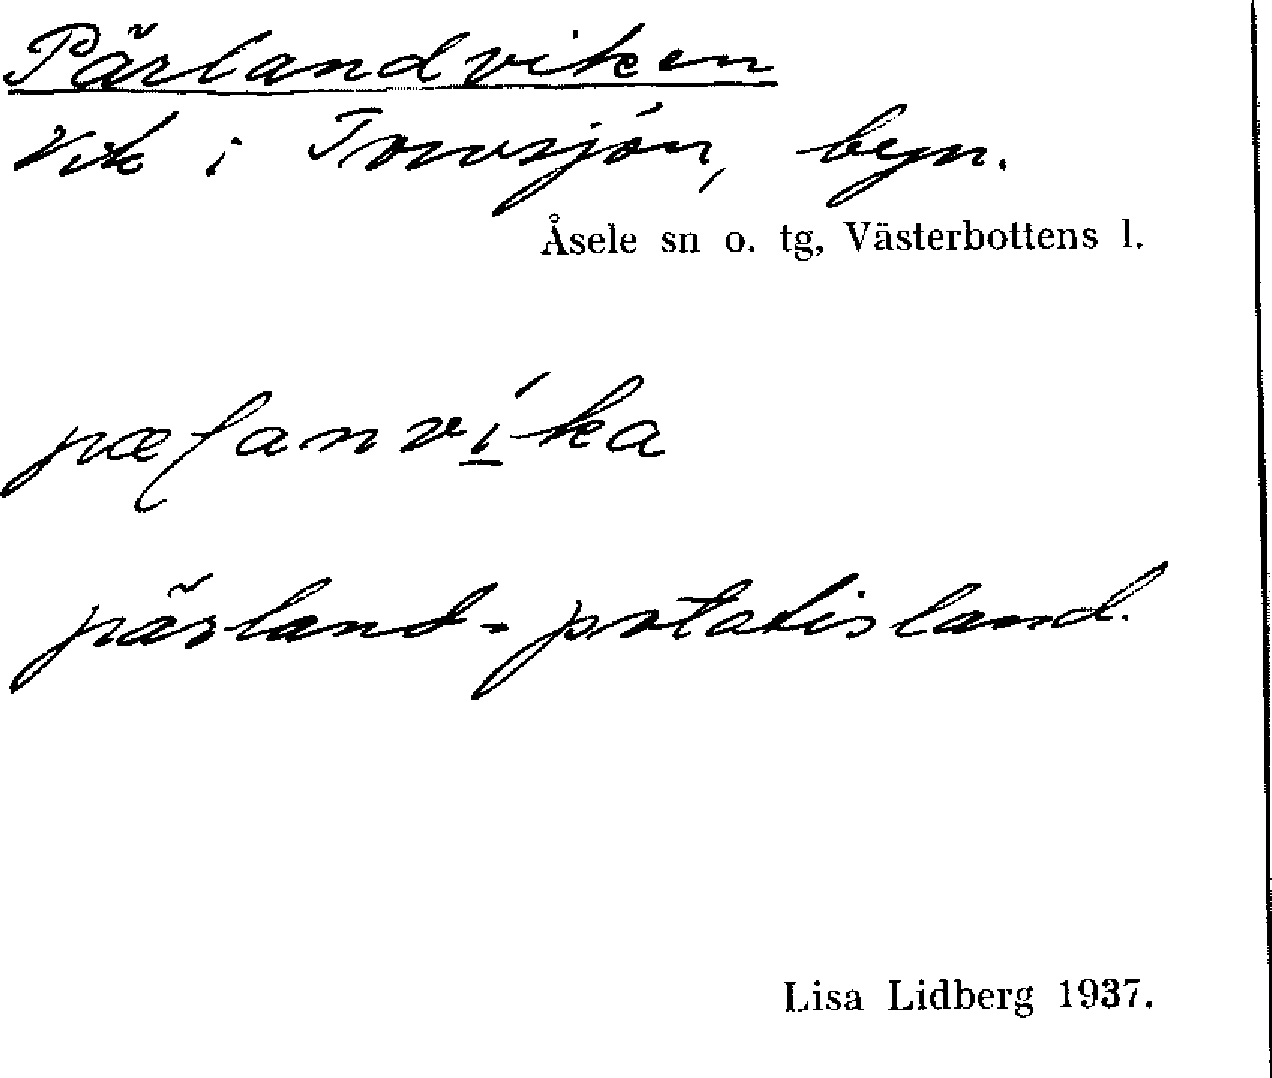 Pärlandviken
Vik i Torvsjön, byn.
Åsele sn o. tg, Västerbottens l.
pæɭanví̲ka
pärland - potatisland.
Lisa Lidberg 1937.